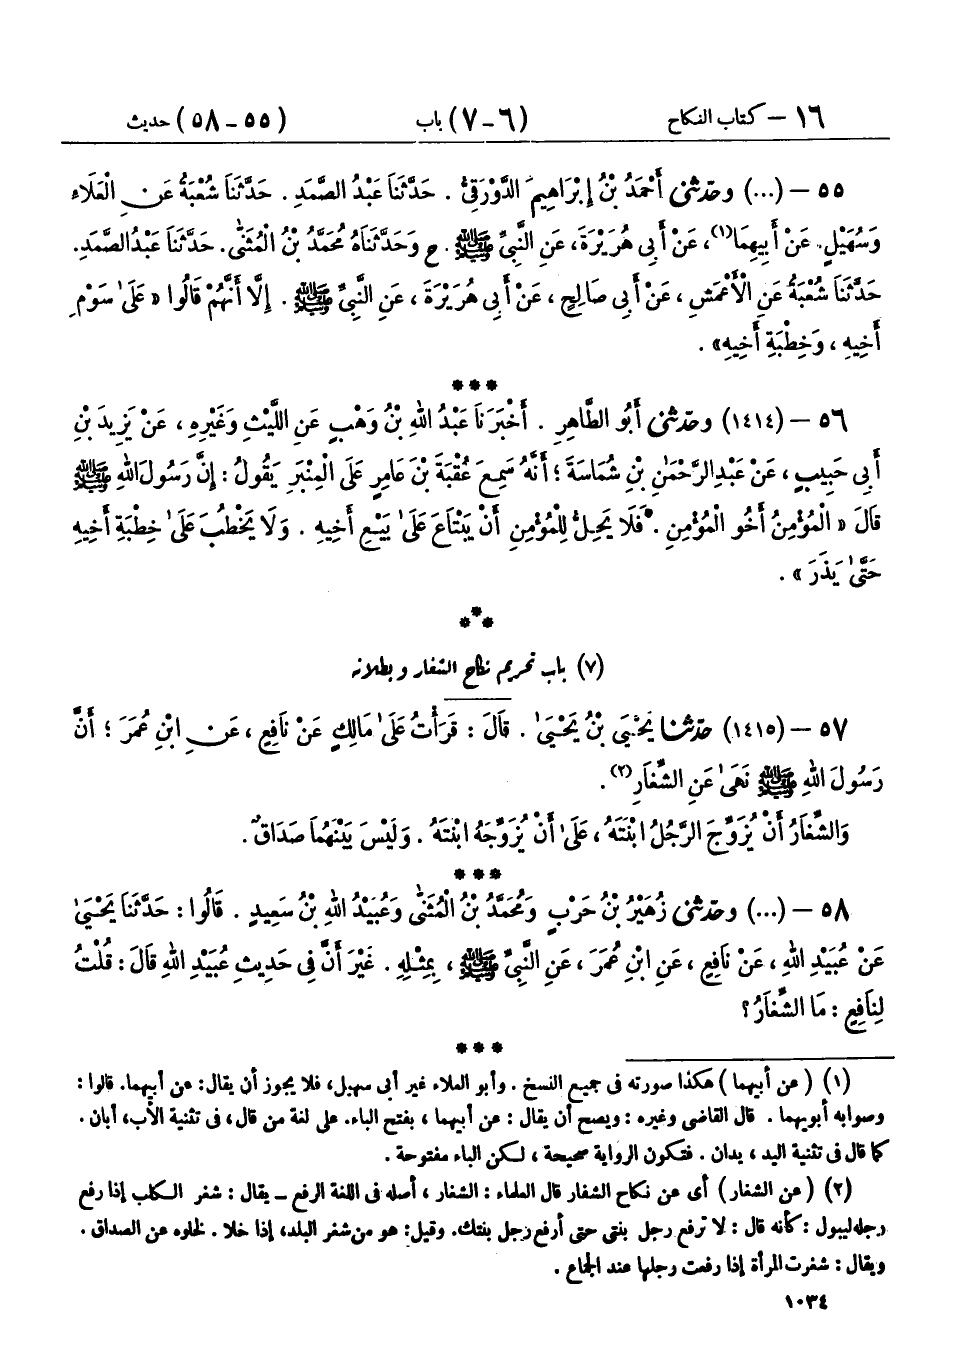 ١٦ – كتاب النكاح (٦ – ٧) باب (٥٥ – ٥٨) حديث
٥٥ – (...) وحَدَّثَنِي أَحْمَدُ بْنُ إِبْرَاهِيمَ الدَّوْرَقِيُّ . حَدَّثَنَا عَبْدُ الصَّمَدِ . حَدَّثَنَا شُعْبَةُ عَنِ الْعَلَاءِ
وَسُهَيْلٍ. عَنْ أَبِيهِمَا(١)، عَنْ أَبِي هُرَيْرَةَ، عَنِ النَّبِيِّ ﷺ . ح وَحَدَّثَنَاهُ مُحَمَّدُ بْنُ الْمُثَنَّى. حَدَّثَنَا عَبْدُ الصَّمَدِ.
حَدَّثَنَا شُعْبَةُ عَنِ الْأَعْمَشِ ، عَنْ أَبِي صَالِحٍ ، عَنْ أَبِي هُرَيْرَةَ ، عَنِ النَّبِيِّ ﷺ . إِلَّا أَنَّهُمْ قَالُوا « عَلَى سَوْمِ
أَخِيهِ ، وَخِطْبَةِ أَخِيهِ» .
***
٥٦ – (١٤١٤) وحَدَّثَنِي أَبُو الطَّاهِرِ . أَخْبَرَنَا عَبْدُ اللهِ بْنُ وَهْبٍ عَنِ اللَّيْثِ وَغَيْرِهِ ، عَنْ يَزِيدَ بْنِ
أَبِي حَبِيبٍ ، عَنْ عَبْدِ الرَّحْمَنِ بْنِ شُمَاسَةَ ؛ أَنَّهُ سَمِعَ عُقْبَةَ بْنَ عَامِرٍ عَلَى الْمِنْبَرِ يَقُولُ : إِنَّ رَسُولَ اللهِ ﷺ
قَالَ « الْمُؤْمِنُ أَخُو الْمُؤْمِنِ . فَلَا يَحِلُّ لِلْمُؤْمِنِ أَنْ يَبْتَاعَ عَلَى بَيْعِ أَخِيهِ . وَلَا يَخْطُبَ عَلَى خِطْبَةِ أَخِيهِ
حَتَّى يَذَرَ » .
***
(٧) باب تحريم نكاح الشغار وبطلانه
٥٧ – (١٤١٥) حَدَّثَنَا يَحْيَى بْنُ يَحْيَى . قَالَ : قَرَأْتُ عَلَى مَالِكٍ عَنْ نَافِعٍ ، عَنِ ابْنِ عُمَرَ ؛ أَنَّ
رَسُولَ اللهِ ﷺ نَهَى عَنِ الشِّغَارِ(٢) .
وَالشِّغَارُ أَنْ يُزَوِّجَ الرَّجُلُ ابْنَتَهُ ، عَلَى أَنْ يُزَوِّجَهُ ابْنَتَهُ . وَلَيْسَ بَيْنَهُمَا صَدَاقٌ .
***
٥٨ – (...) وحَدَّثَنِي زُهَيْرُ بْنُ حَرْبٍ وَمُحَمَّدُ بْنُ الْمُثَنَّى وَعُبَيْدُ اللهِ بْنُ سَعِيدٍ . قَالُوا : حَدَّثَنَا يَحْيَى
عَنْ عُبَيْدِ اللهِ ، عَنْ نَافِعٍ ، عَنِ ابْنِ عُمَرَ ، عَنِ النَّبِيِّ ﷺ ، بِمِثْلِهِ . غَيْرَ أَنَّ فِي حَدِيثِ عُبَيْدِ اللهِ قَالَ : قُلْتُ
لِنَافِعٍ : مَا الشِّغَارُ؟
***
(١) (عن أبيهما) هكذا صورته في جميع النسخ . وأبو العلاء غير أبي سهيل، فلا يجوز أن يقال: عن أبيهما. قالوا :
وصوابه أبويهما . قال القاضي وغيره : ويصح أن يقال : عن أبيهما ، بفتح الباء. على لغة من قال، في تثنية الأب، أبان .
كما قال في تثنية اليد ، يدان . فتكون الرواية صحيحة ، لكن الباء مفتوحة .
(٢) (عن الشغار) أي عن نكاح الشغار قال العلماء : الشغار ، أصله في اللغة الرفع – يقال : شغر الكلب إذا رفع
رجله ليبول : كأنه قال : لا ترفع رجل بنتي حتى أرفع رجل بنتك. وقيل: هو من شغر البلد، إذا خلا . لخلوه عن الصداق .
ويقال : شغرت المرأة إذا رفعت رجلها عند الجماع .
١٠٣٤